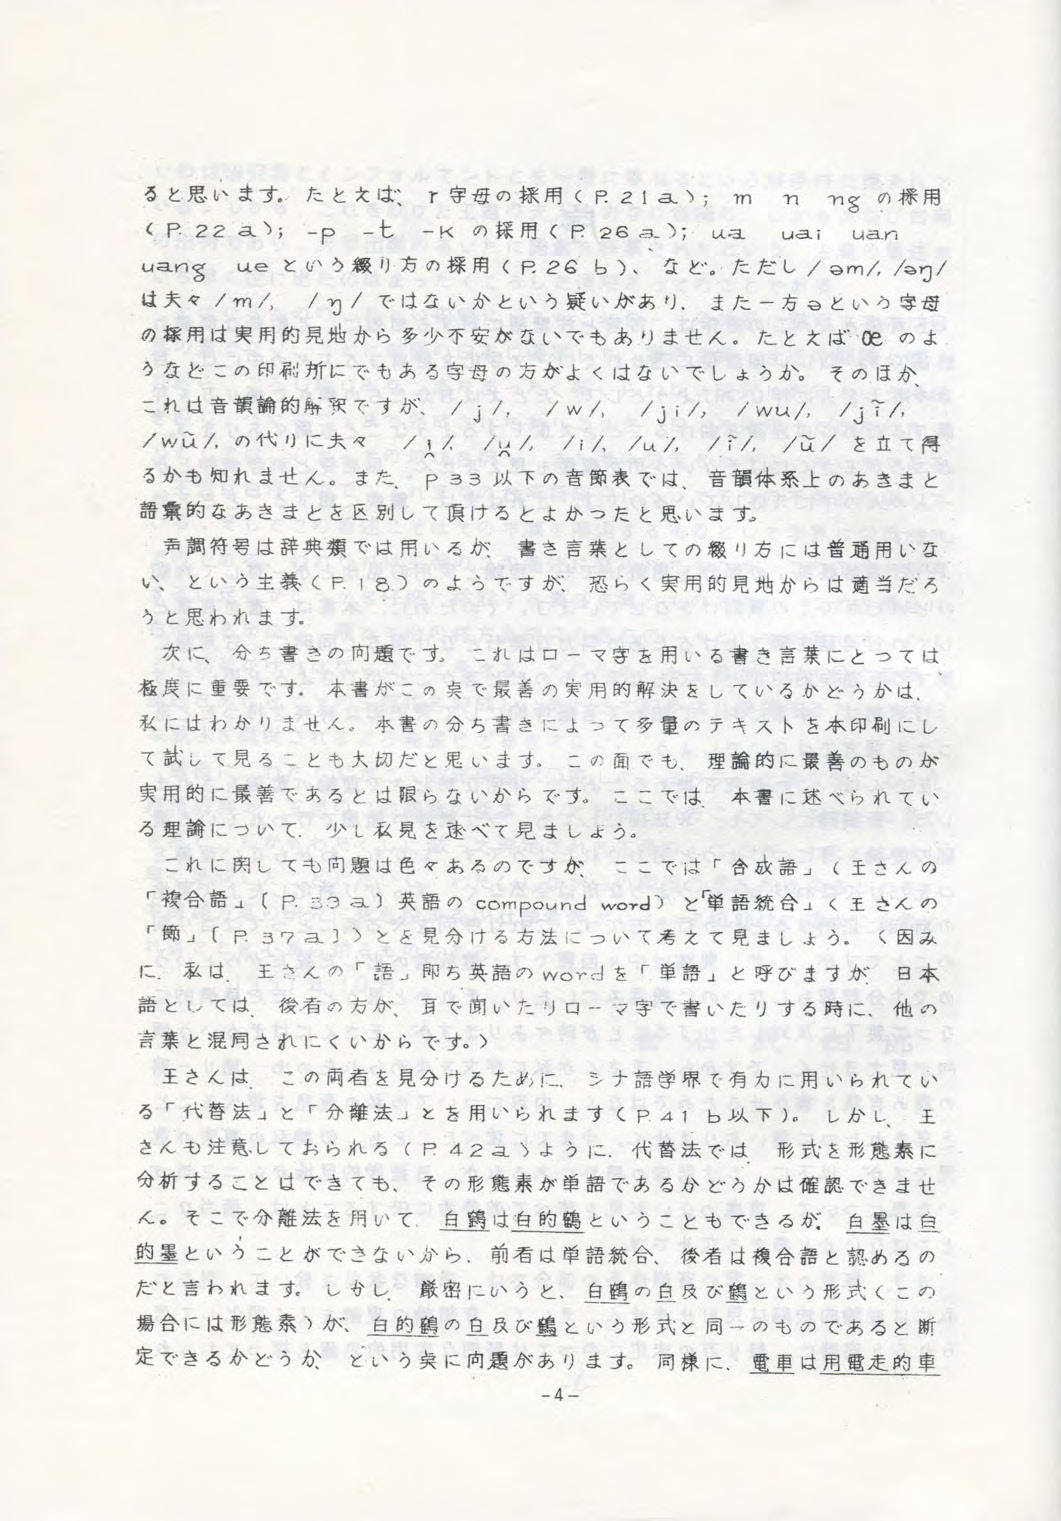 ると思います。たとえば、r字母の採用(P.21a); m n ngの採用
(P.22a); -p -t -kの採用(P.26a); ua uai uan
uang ueという綴り方の採用(P.26b)、など。ただし/əm/,/əŋ/
は夫々/m/, /ŋ/ではないかという疑いがあり、また一方əという字母
の採用は実用的見地から多少不安がないでもありません。たとえばœのよ
うなどこの印刷所にでもある字母の方がよくはないでしょうか。そのほか、
これは音韻論的解釈ですが、/j/, /w/, /ji/, /wu/, /jĩ/,
/wũ/,の代りに夫々 /i̯/, /u̯/, /i/, /u/, /ĩ/, /ũ/を立て得
るかも知れません。また、p33以下の音節表では、音韻体系上のあきまと
語彙的なあきまとを区別して頂けるとよかったと思います。
声調符号は辞典類では用いるが、書き言葉としての綴り方には普通用いな
い、という主義(P.18)のようですが、恐らく実用的見地からは適当だろ
うと思われます。
次に、分ち書きの問題です。これはローマ字を用いる書き言葉にとっては、
極度に重要です。本書がこの点で最善の実用的解決をしているかどうかは、
私にはわかりません。本書の分ち書きによって多量のテキストを本印刷にし
て試して見ることも大切だと思います。この面でも、理論的に最善のものが
実用的に最善であるとは限らないからです。ここでは、本書に述べられてい
る理論について、少し私見を述べて見ましょう。
これに関しても問題は色々あるのですが、ここでは「合成語」(王さんの
「複合語」〔P.39a〕英語のcompound word)と「単語統合」(王さんの
「節」〔P.37a〕)とを見分ける方法について考えて見ましょう。(因み
に、私は、王さんの「語」即ち英語のwordを「単語」と呼びますが、日本
語としては、後者の方が、耳で聞いたりローマ字で書いたりする時に、他の
言葉と混同されにくいからです。)
王さんは、この両者を見分けるために、シナ語学界で有力に用いられてい
る「代替法」と「分離法」とを用いられます(P.41b以下)。しかし、王
さんも注意しておられる(P.42a)ように、代替法では、形式を形態素に
分析することはできても、その形態素が単語であるかどうかは確認できませ
ん。そこで分離法を用いて、白鶴は白的鶴ということもできるが、白墨は白
的墨ということができないから、前者は単語統合、後者は複合語と認めるの
だと言われます。しかし、厳密にいうと、白鶴の白及び鶴という形式(この
場合には形態素)が、白的鶴の白及び鶴という形式と同一のものであると断
定できるかどうか、という点に問題があります。同様に、電車は用電走的車
-4-